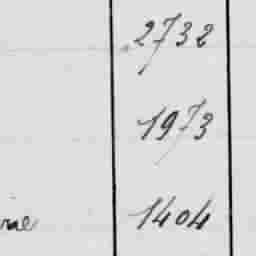 2732
1973
1404